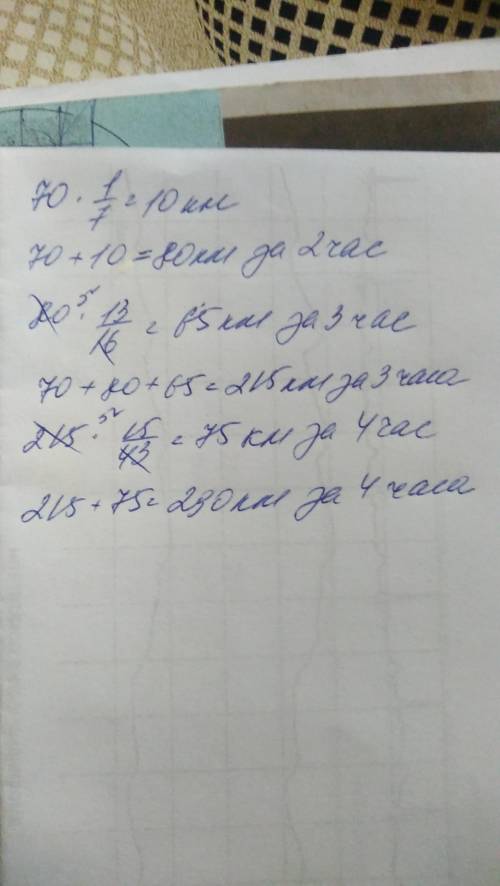 70 · 1/7 = 10 км
70 + 10 = 80 км за 2 час
80 5 · 13/16 = 65 км за 3 час
70 + 80 + 65 = 215 км за 3 часа
215 5 · 15/43 = 75 км за 4 час
215 + 75 = 290 км за 4 часа